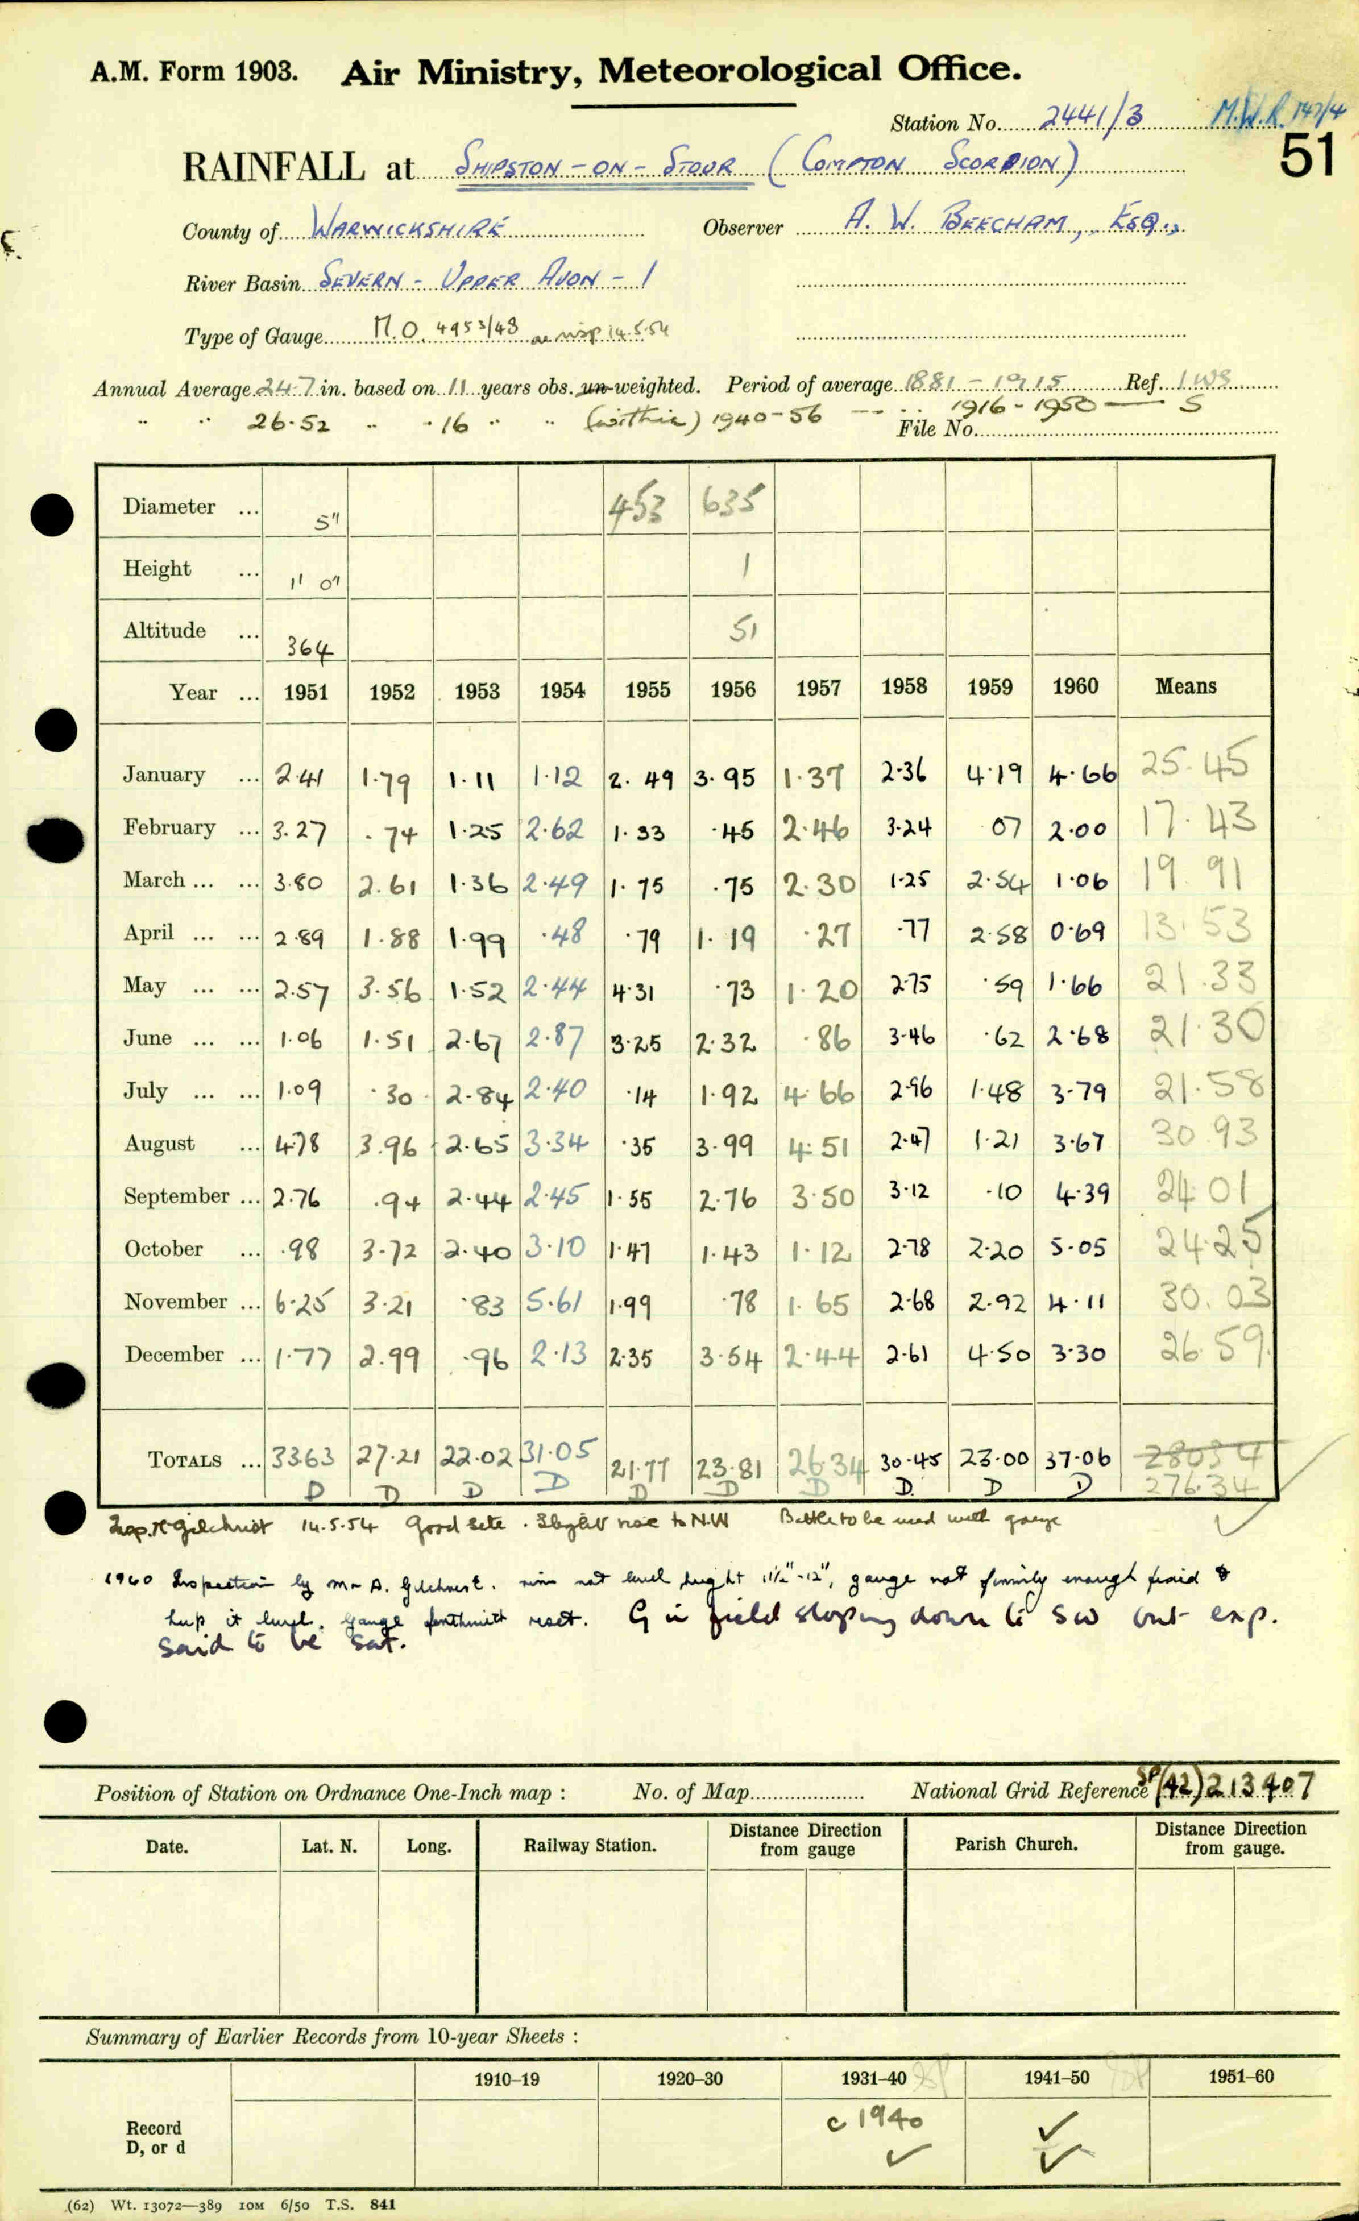 A.M. Form 1903. Air Ministry, Meteorological Office.
Station No. 2441/3 M.W.R. 147/4
51
RAINFALL at SHIPSTON-ON-STOUR (COMPTON SCORPION)
County of WARWICKSHIRE Observer A. W. BEECHAM, ESQ.,
River Basin SEVERN - UPPER AVON - 1
Type of Gauge M.O. 4953/48 as insp 14.5.54
Annual Average 24.7 in. based on 11 years obs. un-weighted. Period of average 1881-1915 Ref. IWS
" " 26.52 " " 16 " " (within) 1940-56 — " 1916-1950 — S
File No.
Diameter ... 5" 453 635
Height ... 1' 0" 1
Altitude ... 364 51
Year ... 1951 1952 1953 1954 1955 1956 1957 1958 1959 1960 Means
January ... 2.41 1.79 1.11 1.12 2.49 3.95 1.37 2.36 4.19 4.66 25.45
February ... 3.27 .74 1.25 2.62 1.33 .45 2.46 3.24 07 2.00 17.43
March ... ... 3.80 2.61 1.36 2.49 1.75 .75 2.30 1.25 2.54 1.06 19.91
April ... ... 2.89 1.88 1.99 .48 .79 1.19 .27 .77 2.58 0.69 13.53
May ... ... 2.57 3.56 1.52 2.44 4.31 .73 1.20 2.75 .59 1.66 21.33
June ... ... 1.06 1.51 2.67 2.87 3.25 2.32 .86 3.46 .62 2.68 21.30
July ... ... 1.09 .30 2.84 2.40 .14 1.92 4.66 2.96 1.48 3.79 21.58
August ... 4.78 3.96 2.65 3.34 .35 3.99 4.51 2.47 1.21 3.67 30.93
September ... 2.76 .94 2.44 2.45 1.55 2.76 3.50 3.12 .10 4.39 24.01
October ... .98 3.72 2.40 3.10 1.47 1.43 1.12 2.78 2.20 5.05 24.25
November ... 6.25 3.21 .83 5.61 1.99 .78 1.65 2.68 2.92 4.11 30.03
December ... 1.77 2.99 .96 2.13 2.35 3.54 2.44 2.61 4.50 3.30 26.59
TOTALS ... 33.63 27.21 22.02 31.05 21.77 23.81 26.34 30.45 23.00 37.06 280.34
D D D D D D D D D D 276.34
Insp. Gilchrist 14.5.54 Good site. Slight rise to N.W Bottle to be used with gauge
1960 Inspection by Mr A. Gilchrist. rim not level, height 11½"-12", gauge not firmly enough fixed to
keep it level. gauge reset. G in field sloping down to SW but exp.
said to be sat.
Position of Station on Ordnance One-Inch map : No. of Map National Grid Reference SP(42)213407
Date. Lat. N. Long. Railway Station. Distance Direction from gauge Parish Church. Distance Direction from gauge.
Summary of Earlier Records from 10-year Sheets :
1910–19 1920–30 1931–40 1941–50 1951–60
Record c 1940 ✓
D, or d ✓ ✓
(62) Wt. 13072—389 10M 6/50 T.S. 841